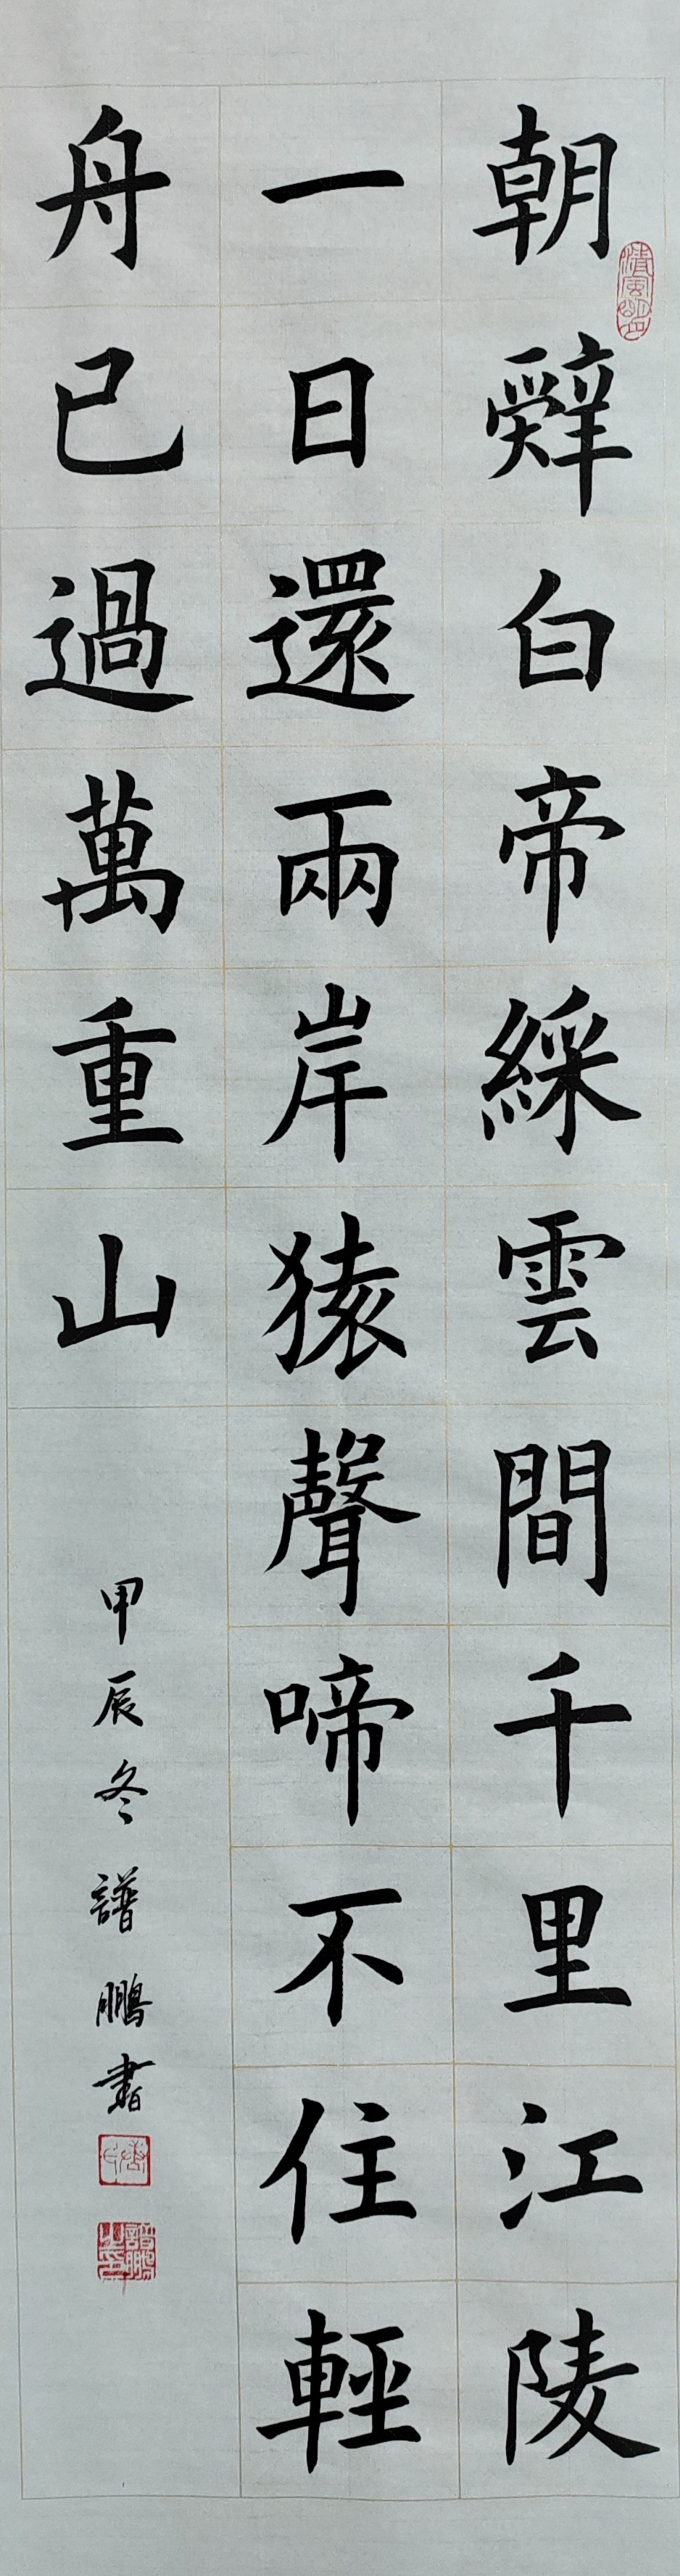 朝辤白帝綵雲間千里江陵
一日還兩岸猿聲啼不住輕
舟已過萬重山
甲辰冬譜鵬書